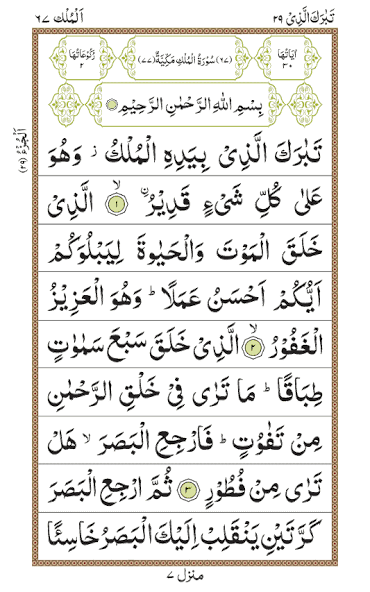 تَبٰرَكَ الَّذِیْ ۲۹
اَلْمُلْك ۶۷
اٰیَاتُهَا ۳۰
(۶۷) سُوْرَةُ الْمُلْكِ مَكِّیَّةٌ (۷۷)
رُكُوْعَاتُهَا ۲
بِسْمِ اللّٰهِ الرَّحْمٰنِ الرَّحِیْمِ
اَلْجُزْءُ (۲۹)
تَبٰرَكَ الَّذِیْ بِیَدِهِ الْمُلْكُ ز وَهُوَ
عَلٰی كُلِّ شَیْءٍ قَدِیْرُ ۙ۝۱ الَّذِیْ
خَلَقَ الْمَوْتَ وَالْحَیٰوةَ لِیَبْلُوَكُمْ
اَیُّكُمْ اَحْسَنُ عَمَلًا ؕ وَهُوَ الْعَزِیْزُ
الْغَفُوْرُ ۙ۝۲ الَّذِیْ خَلَقَ سَبْعَ سَمٰوٰتٍ
طِبَاقًا ؕ مَا تَرٰی فِیْ خَلْقِ الرَّحْمٰنِ
مِنْ تَفٰوُتٍ ؕ فَارْجِعِ الْبَصَرَ ۙ هَلْ
تَرٰی مِنْ فُطُوْرٍ ۝۳ ثُمَّ ارْجِعِ الْبَصَرَ
كَرَّتَیْنِ یَنْقَلِبْ اِلَیْكَ الْبَصَرُ خَاسِئًا
منزل ۷